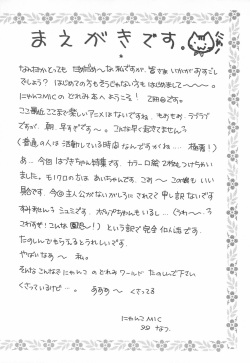 まえがきです。
なんだかとっても だめだめ~な 私ですが、皆さまいかがおすごし
でしょう? はじめての方もそうじゃない方も はじめまして~~~。
にゃんこMICの どれみ本へようこそ! 2冊目です。
ここ最近ここまで楽しいアニメはないですね、もぉもぉラブラブ
ですわ。朝早すぎです~。こんな早く起きてません
(普通の人は活動している時間なんですがくね… 極悪!)
あ…今回はづきちゃん特集です。カラー口絵2枚もつけちゃい
ました。モノクロの方は あいちゃんです。これ~ この娘もいい
娘です。今回主人公がないがしろにされてて申し訳ないです
すみませんシュミです。オヤジちゃんもいるし…(うわ~ろ
これすぎ!こんな園児~!)という訳で完全個人誌です。
たのしんでもらえるとうれしいです。
やばいなぁ~ 私。
そんなこんなで にゃんこのどれみワールド たのしんで下さい
くさっているけど…。 ああああ~ くさってる
にゃんこMIC
99 なつ。